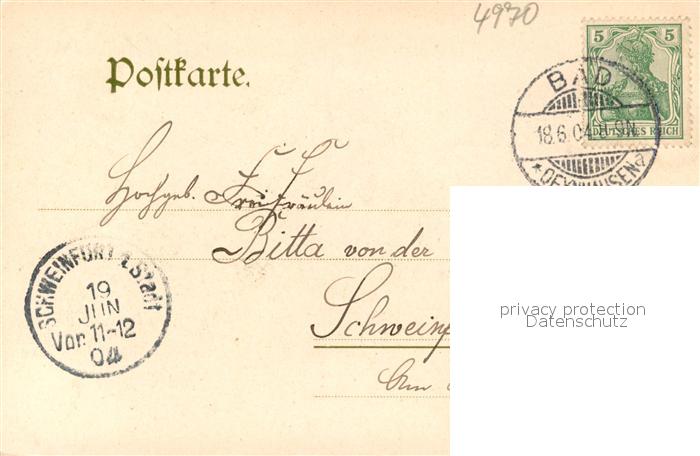 4970
5 5
DEUTSCHES REICH
BAD
18.6.04
* OEYNHAUSEN a
Postkarte.
Hochgeb. Freifräulein
Bitta von der
SCHWEINFURT Stadt
19
JUN
Vor. 11-12
04
Schweinf
Am
privacy protection
Datenschutz